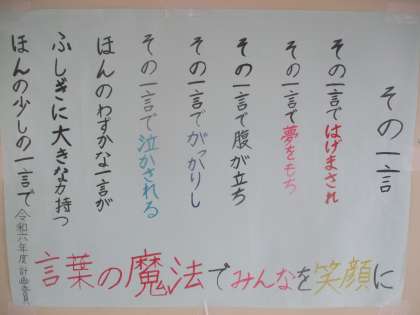 その一言
その一言ではげまされ
その一言で夢をもち
その一言で腹が立ち
その一言でがっかりし
その一言で泣かされる
ほんのわずかな一言が
ふしぎに大きな力持つ
ほんの少しの一言で
言葉の魔法でみんなを笑顔に
令和六年度 計画委員